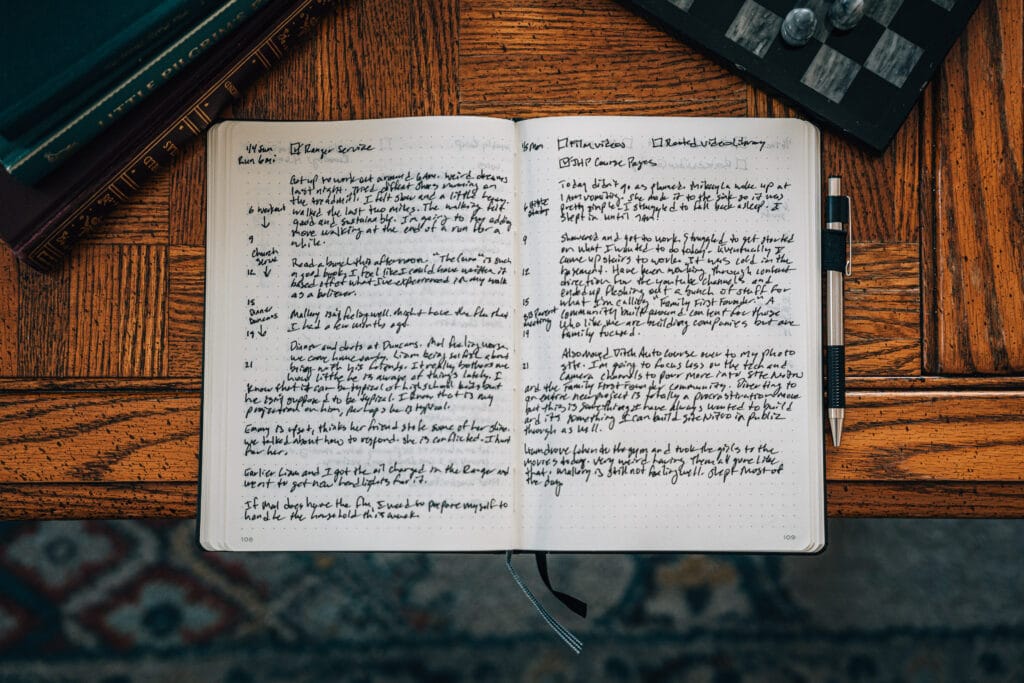 LITTLE PILGRIM'S
1/4 Sun
Run 6mi
Ranger Service
Got up to work out around 6am. Weird dreams
last night. Tried different shoes running on
the treadmill. I felt slow and a little heavy.
walked the last two miles. The walking felt
good and sustainable. I'm going to try adding
more walking at the end of a run for a
while.
6 workout
9
Church
Serve
12
Read a book this afternoon. "The Cure" is such
a good book, I feel like I could have written it
based off of what I've experienced in my walk
as a believer.
15
Dinner
Duncans
19
Mallory isn't feeling well. Might have the flu that
I had a few months ago.
Dinner and darts at Duncans. Mal feeling worse,
we came home early. Liam being selfish about
21
being with his friends. It really bothers me
how little he is aware of things lately. I
know that it can be typical of high school kids but
he isn't supposed to be typical. I know that is my
projection on him, perhaps he is typical.
Emmy is upset, thinks her friend stole some of her skin.
we talked about how to respond. she is conflicted. I hurt
for her.
Earlier Liam and I got the oil changed in the Ranger and
went to get new headlights for it.
If Mal does have the flu, I need to prepare myself to
handle the household this week.
108
1/5 Mon
Film Videos
Rooted Video Library
JHP Course Pages
Today didn't go as planned. woke up at
1 am vomiting. She made it to the sink so it was
pretty simple. I struggled to fall back asleep. I
slept in until 7am!
6
9
Showered and got to work. Struggled to get started
on what I wanted to do today. Eventually I
came upstairs to work. It was cold in the
12
basement. Have been working through content
direction for the youtube channels and
ended up fleshing out a bunch of stuff for
15
what I'm calling "Family First Founder." A
Parent
meeting
community built around content for those
who like me are building companies but are
19
family focused.
Also moved Ditch Auto course over to my photo
21
site. I'm going to focus less on the tech and
camera channels to pour more into SiteNitro
and the Family First Founder community. Diverting to
an entire new project is totally a procrastination move
but this is something I have always wanted to build
and it's something I can build SiteNitro in public
through as well.
Liam drove home from the gym and took the girls to the
movies today. Very weird having them all gone like
that, Mallory is still not feeling well. slept most of
the day.
109